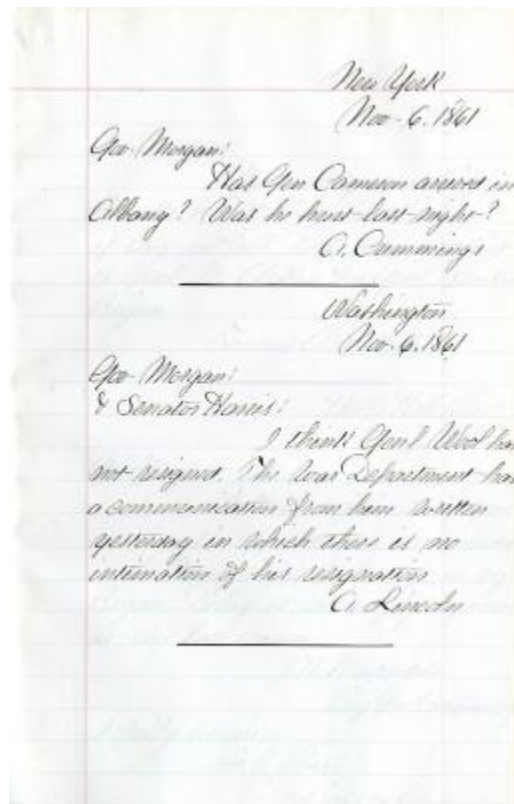 New York
Nov. 6. 1861
Gov. Morgan:
Has Gen Cameron arrived in
Albany? Was he hurt last night?
A. Cummings
Washington
Nov. 6. 1861
Gov. Morgan:
& Senator Harris:
I think Genl Wool has
not resigned. The War Department has
a communication from him written
yesterday in which there is no
intimation of his resignation
A. Lincoln